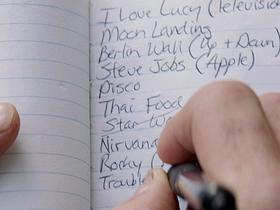 I Love Lucy (Television
Moon Landing
Berlin Wall (Up + Down)
Steve Jobs (Apple)
Disco
Thai Food
Star
Nirvana
Rocky (
Trouble